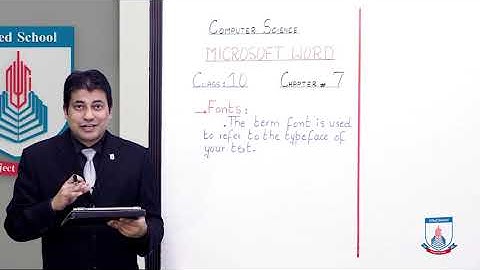 ed School
ject
COMPUTER SCIENCE
MICROSOFT WORD
CLASS: 10 CHAPTER # 7
→ Fonts:
. The term font is used
to refer to the typeface of
your text.